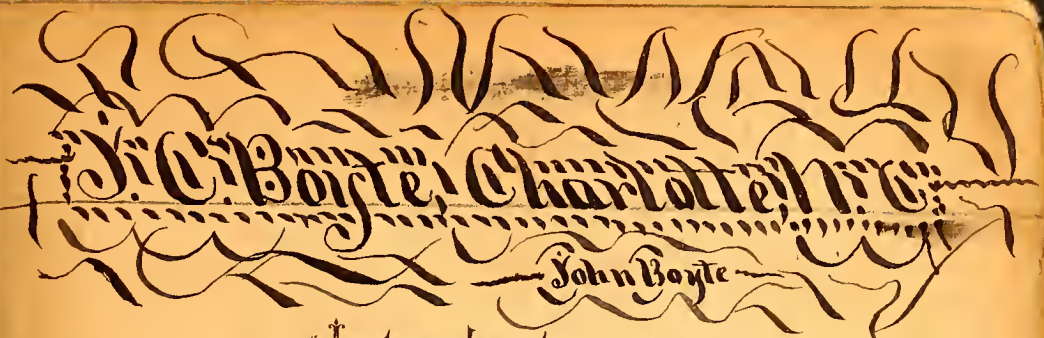 J. C. Boyte, Charlotte, N. C.
John Boyte